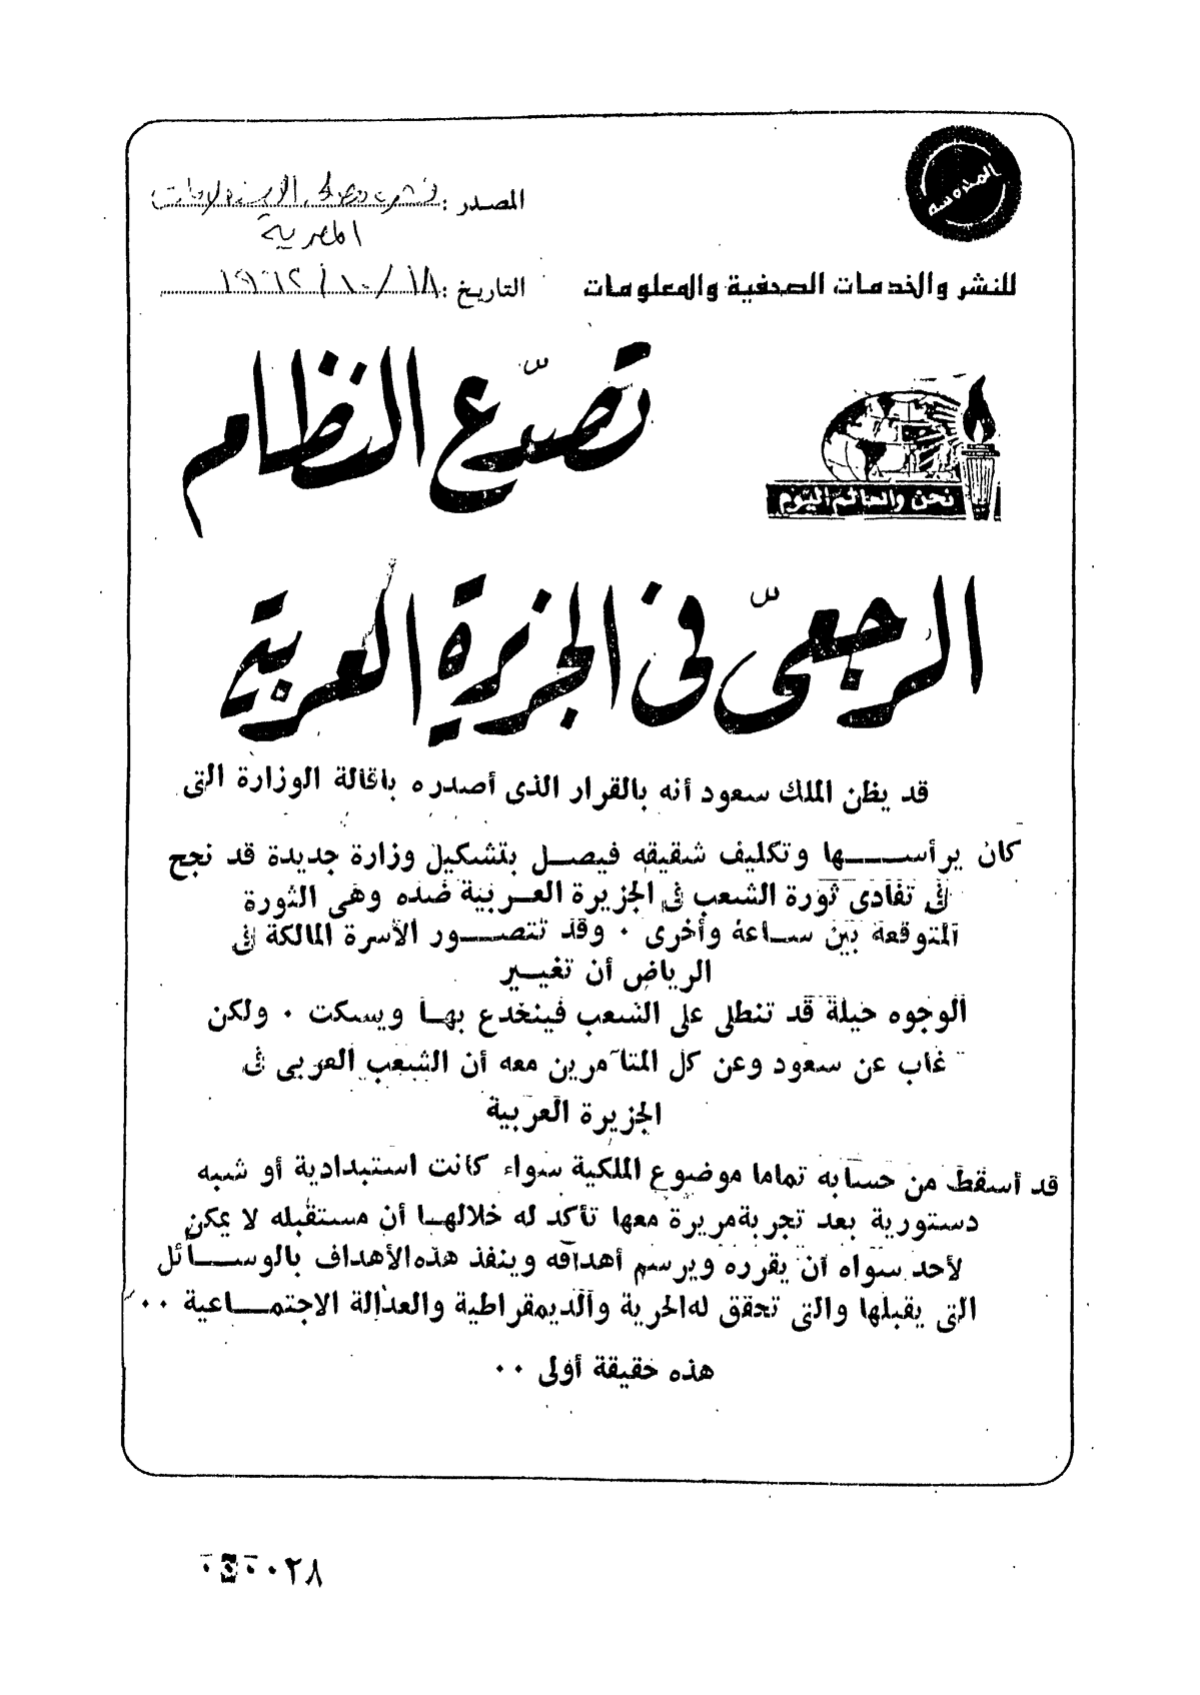 المدرسة
المصدر: نشرة
المصرية
للنشر والخدمات الصحفية والمعلومات
التاريخ: ١٨/١٠/١٩٦٢
تصدّع النظام
نحن والعالم اليوم
الرجعىّ فى الجزيرة العربية
قد يظن الملك سعود أنه بالقرار الذى أصدره باقالة الوزارة التى
كان يرأسها وتكليف شقيقه فيصل بتشكيل وزارة جديدة قد نجح
فى تفادى ثورة الشعب فى الجزيرة العربية ضده وهى الثورة
المتوقعة بين ساعة وأخرى . وقد تتصور الأسرة المالكة فى
الرياض أن تغيير
الوجوه حيلة قد تنطلى على الشعب فينخدع بها ويسكت . ولكن
غاب عن سعود وعن كل المتآمرين معه أن الشعب العربى فى
الجزيرة العربية
قد أسقط من حسابه تماما موضوع الملكية سواء كانت استبدادية أو شبه
دستورية بعد تجربة مريرة معها تأكد له خلالها أن مستقبله لا يمكن
لأحد سواه أن يقرره ويرسم أهدافه وينفذ هذه الأهداف بالوسائل
التى يقبلها والتى تحقق له الحرية والديمقراطية والعدالة الاجتماعية ..
هذه حقيقة أولى ..
٠٠٢٨